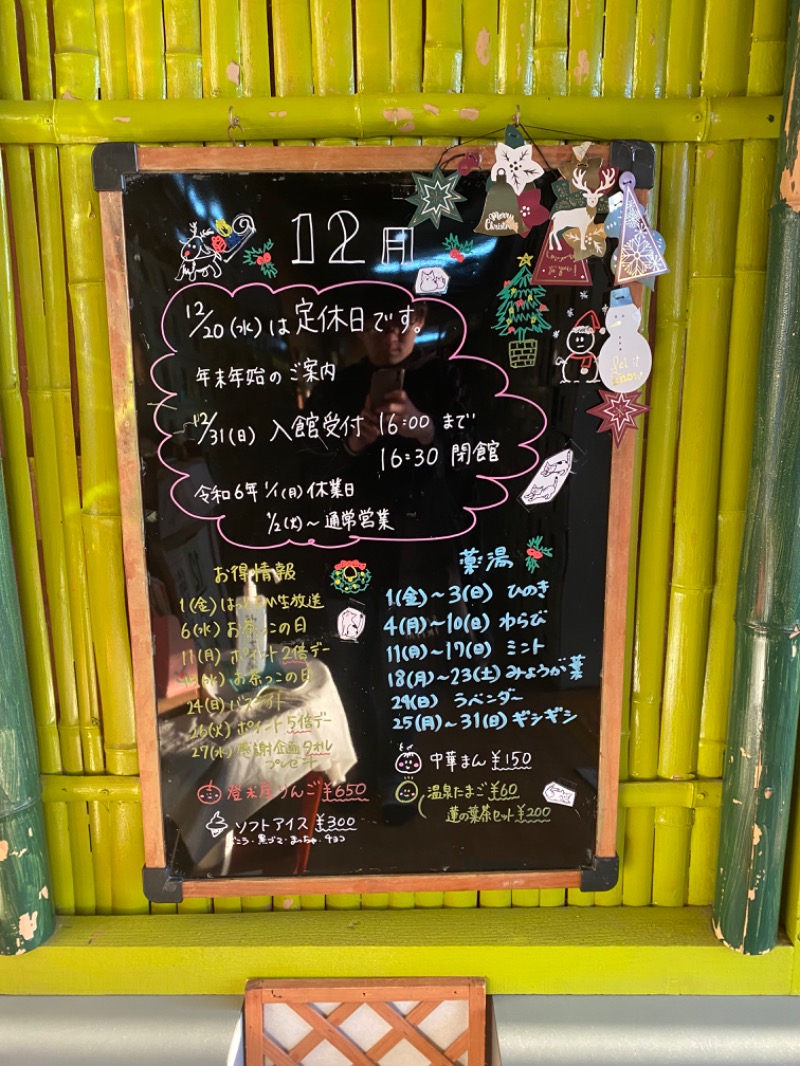 12月
Merry Christmas
12/20(水)は定休日です。
年末年始のご案内
12/31(日) 入館受付 16:00 まで
16:30 閉館
令和6年 1/1(月)休業日
1/2(火)～通常営業
お得情報
1(金) 生放送
6(水) お茶っこの日
11(月) ポイント2倍デー
(水) お茶っこの日
24(日)
26(火) ポイント5倍デー
27(水) 感謝企画タオル
プレゼント
りんご ¥650
ソフトアイス ¥300
黒ゴマ・まっちゃ・チョコ
薬湯
1(金)～3(日) ひのき
4(月)～10(日) わらび
11(月)～17(日) ミント
18(月)～23(土) みょうが葉
24(日) ラベンダー
25(月)～31(日) ギシギシ
中華まん ¥150
温泉たまご ¥60
蓮の葉茶セット ¥200
Let it Snow